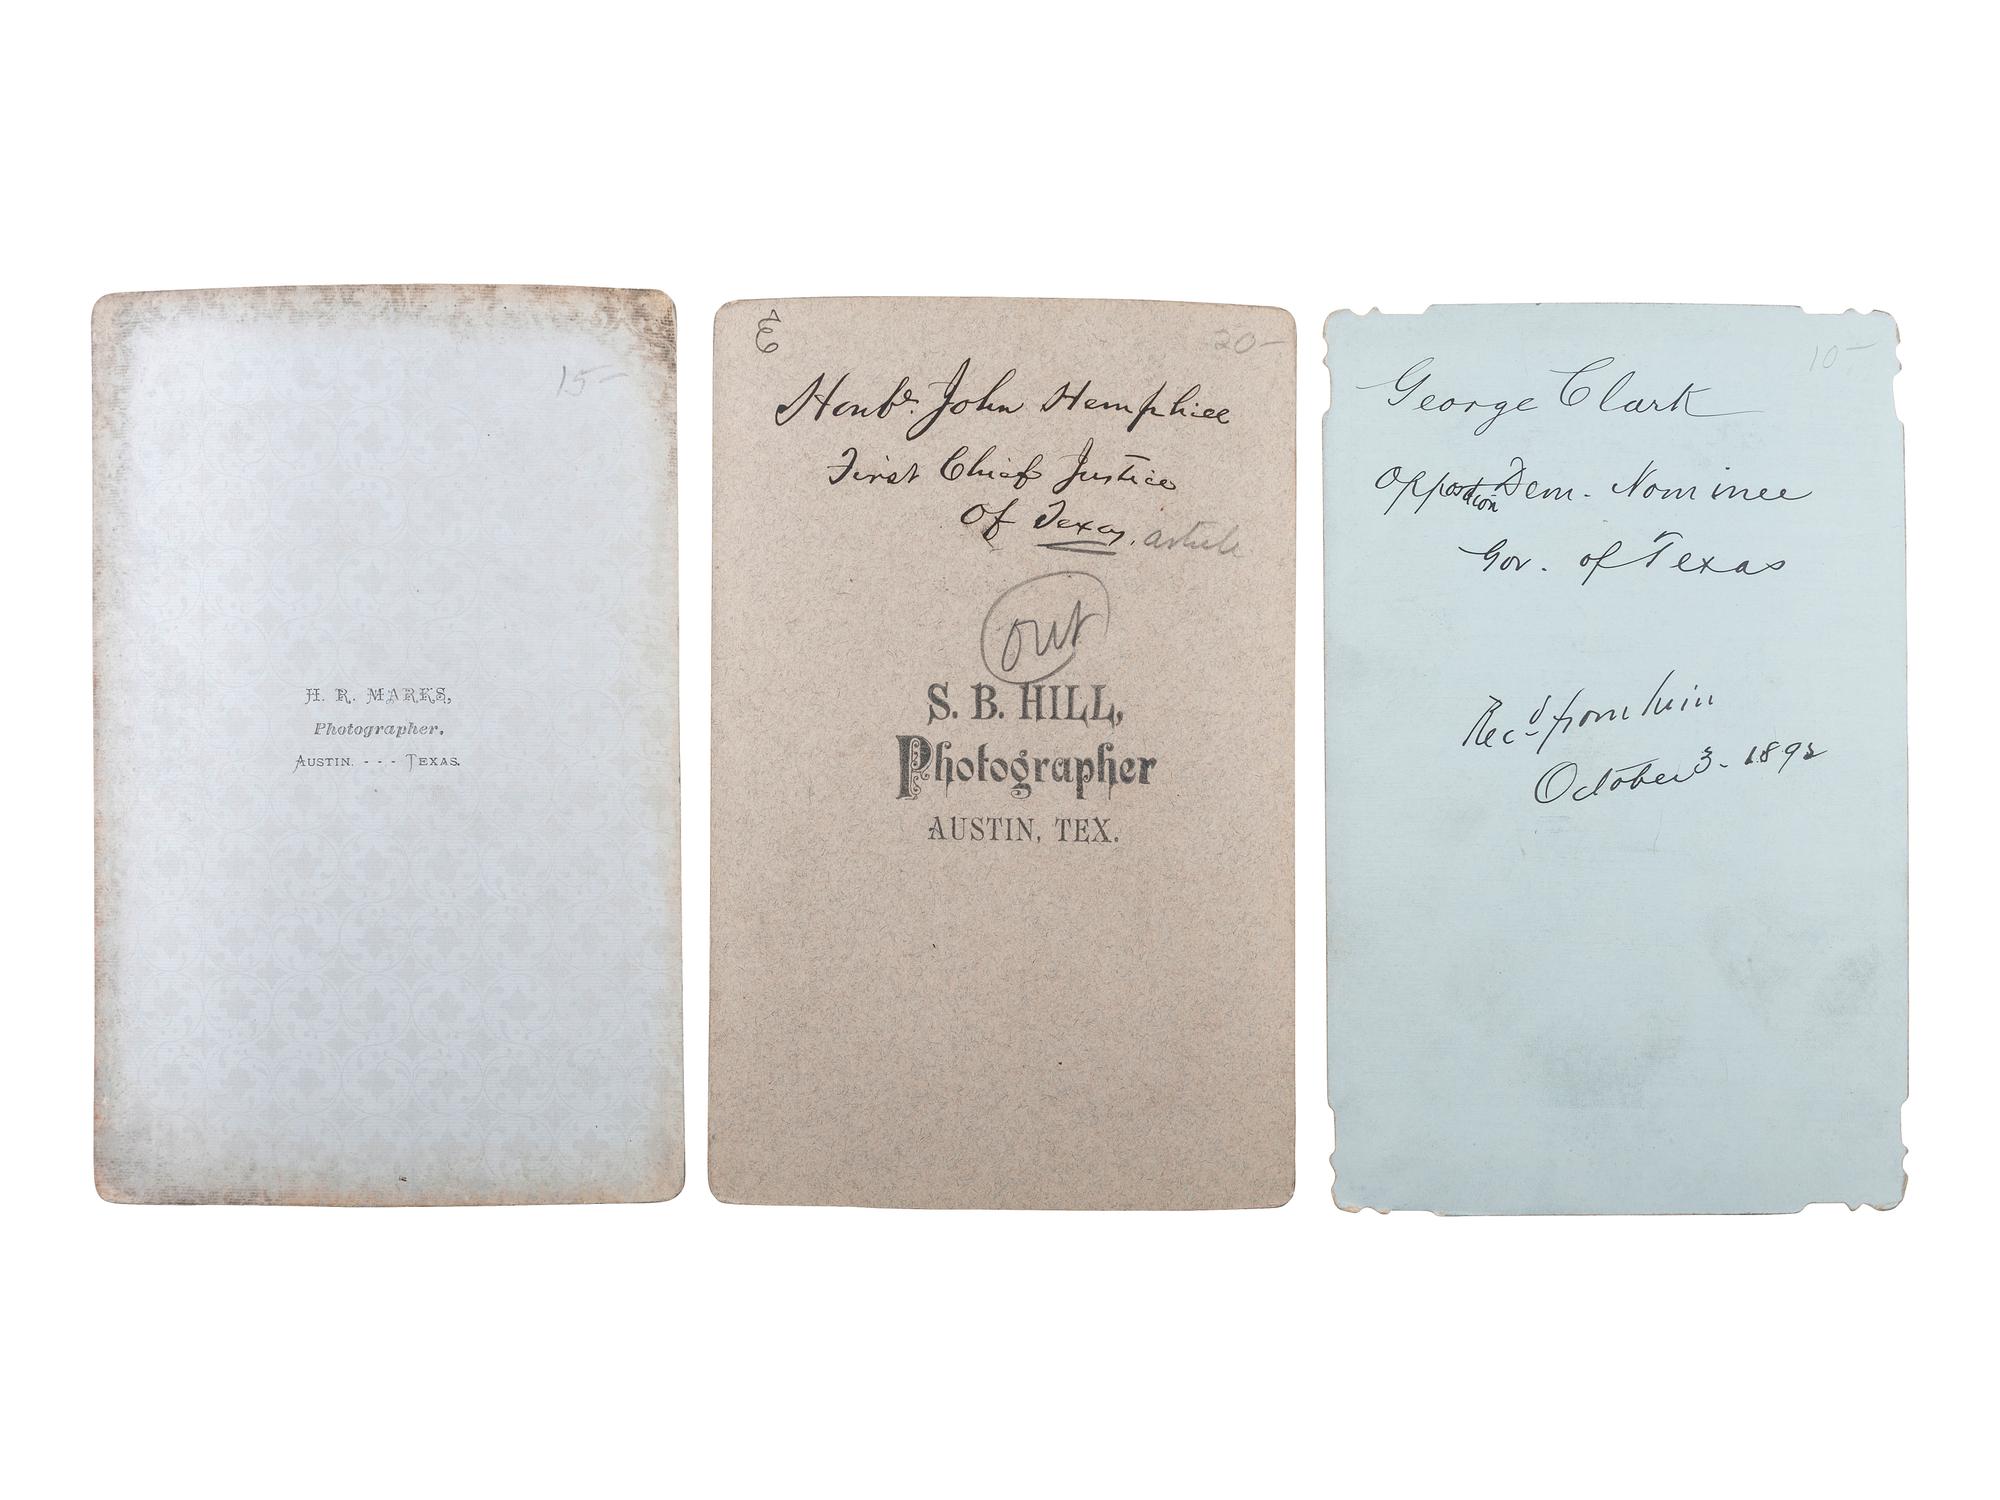 15-
H. R. MARKS,
Photographer.
AUSTIN. - - - TEXAS.
E
20-
Honble. John Hemphill
First Chief Justice
Of Texas. article
out
S. B. HILL,
Photographer
AUSTIN, TEX.
10-
George Clark
Opposition Dem. Nominee
Gov. of Texas
Recd from him
October 3. 1892